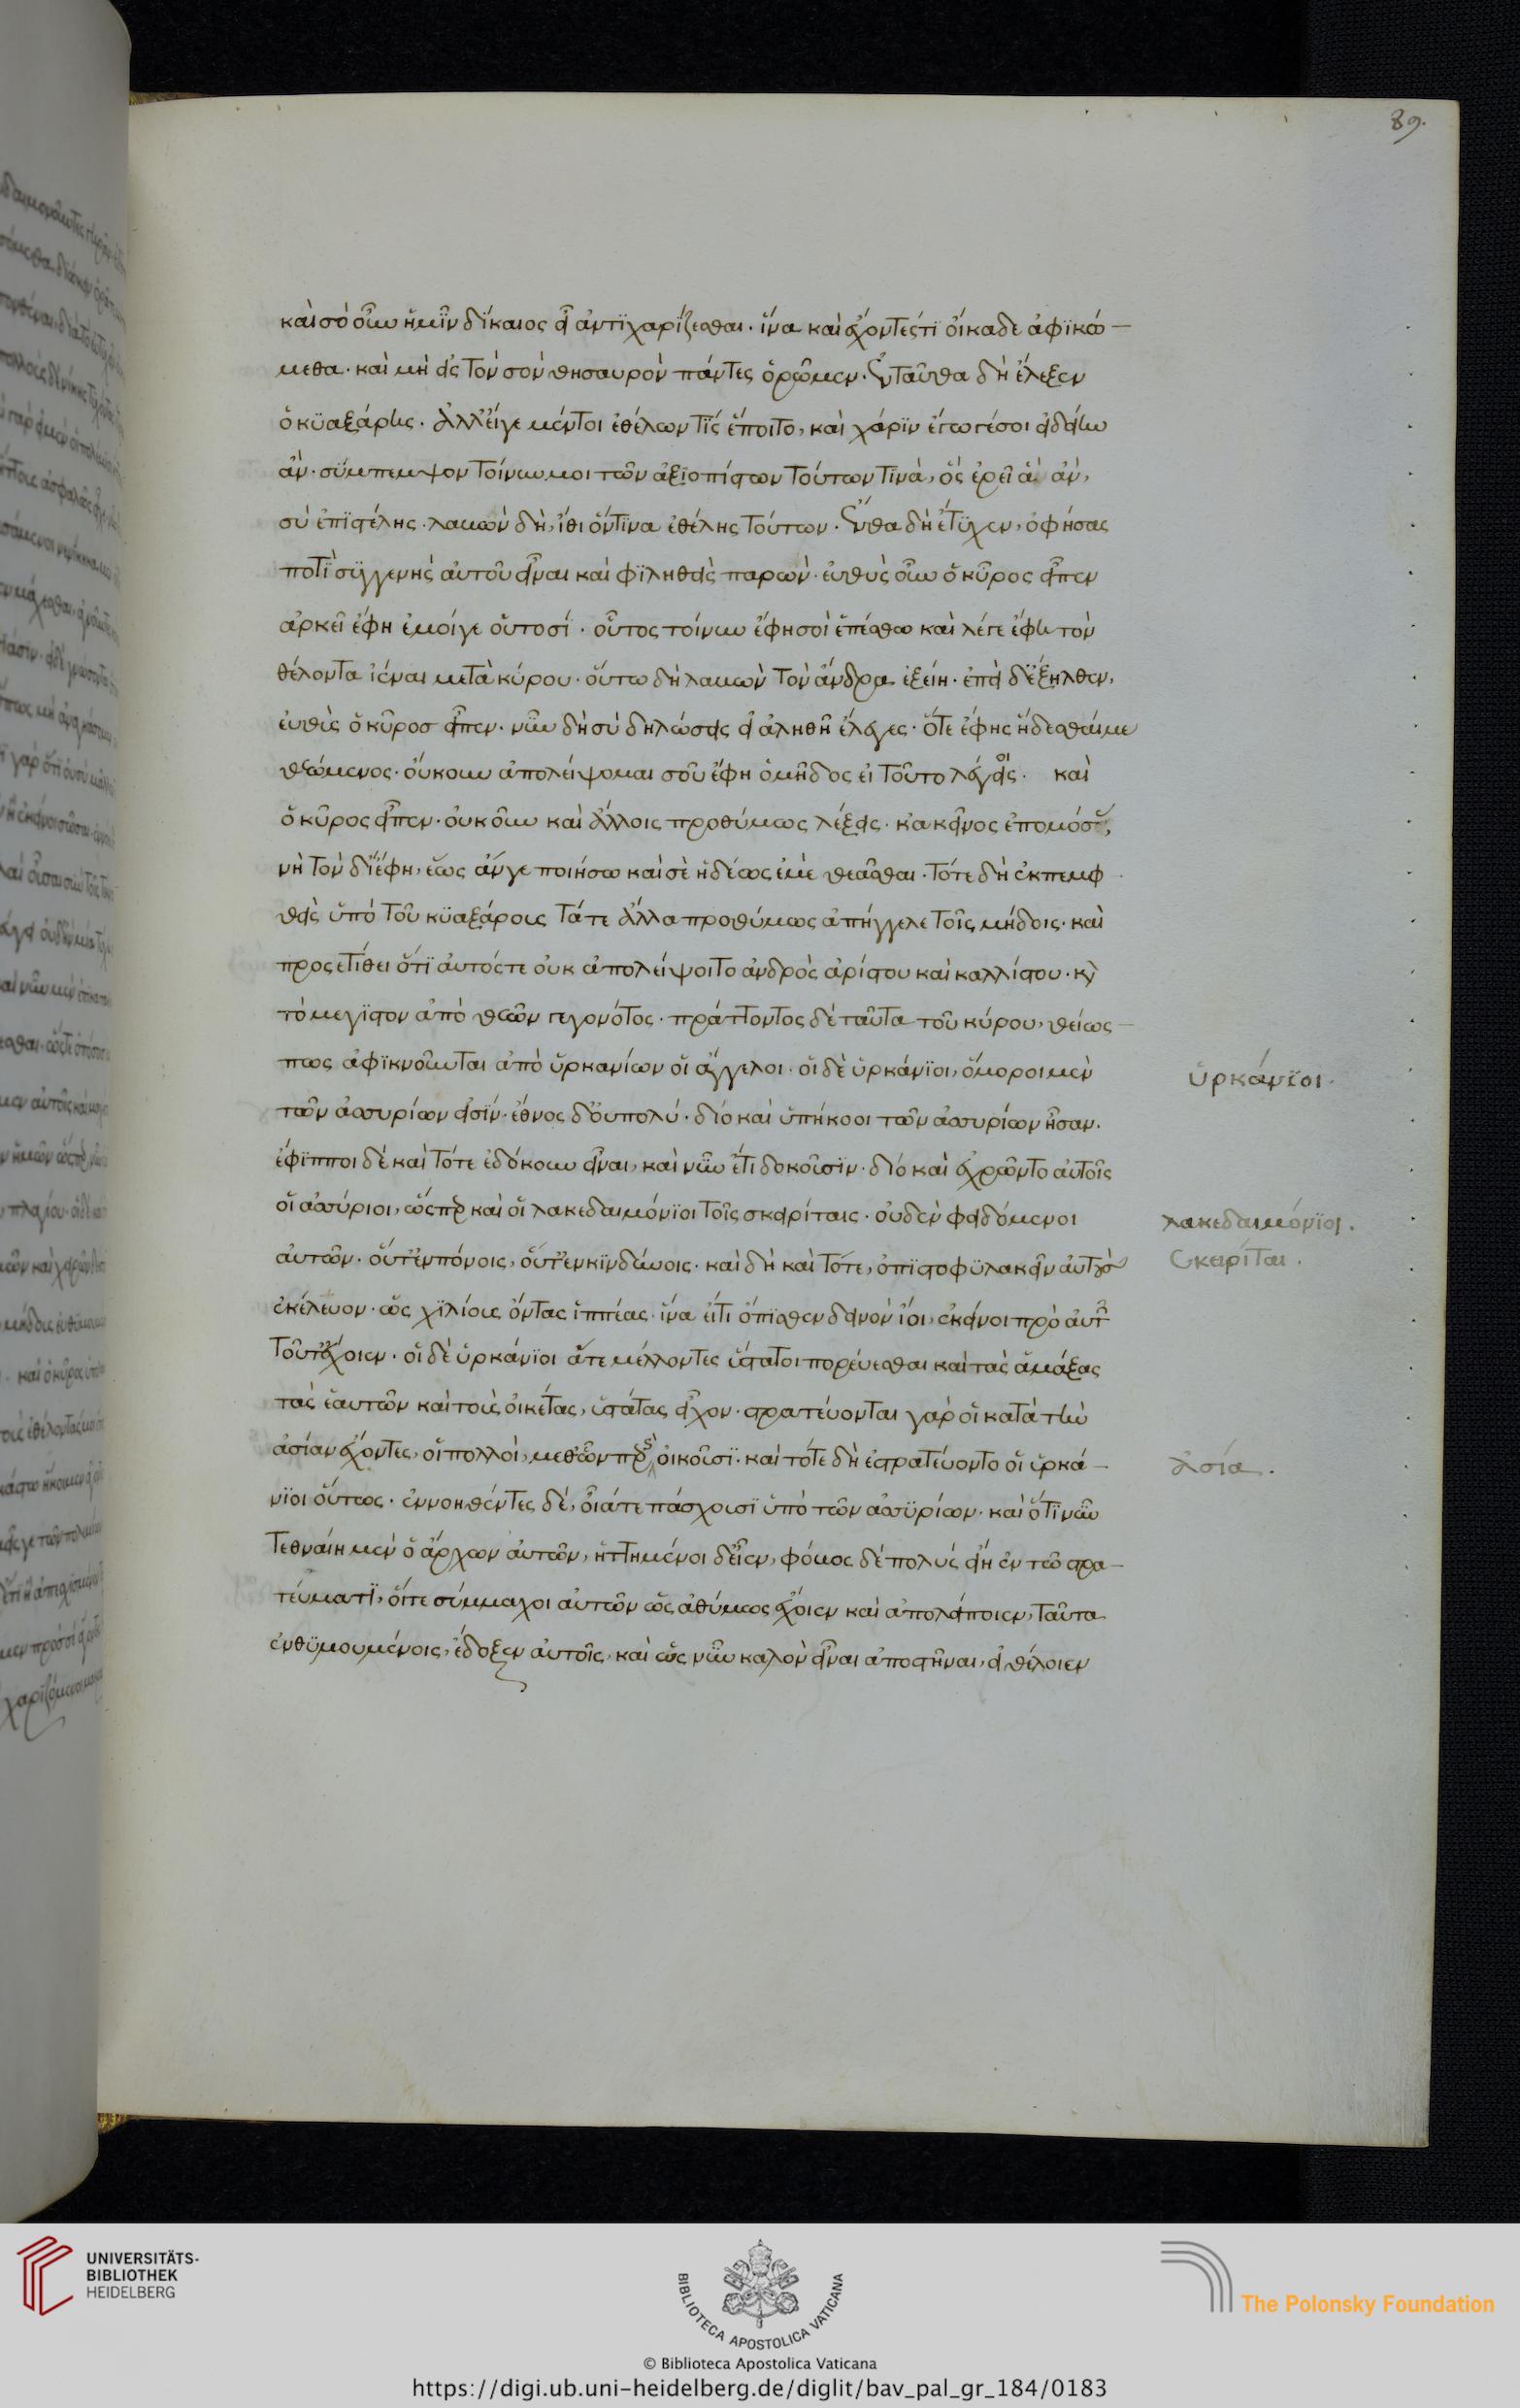 89.
καὶ σὺ οὖν ἡμῖν δίκαιος εἶ ἀντιχαρίζεσθαι· ἵνα καὶ ἔχοντές τι οἴκαδε ἀφικώ-
μεθα· καὶ μὴ εἰς τὸν σὸν θησαυρὸν πάντες ὁρῶμεν. ἐνταῦθα δὴ ἔλεξεν
ὁ κυαξάρης. ἀλλ' εἴγε μέντοι ἐθέλων τίς ἕποιτο, καὶ χάριν ἔγωγέ σοι εἰδείην
ἄν. σύμπεμψον τοίνυν μοι τῶν ἀξιοπίστων τούτων τινὰ, ὃς ἐρεῖ ἃ ἂν,
σὺ ἐπιστέλης. λαβὼν δὴ, ἴθι ὅντινα ἐθέλης τούτων. ἔνθα δὴ ἔτυχεν, ὁ φήσας
ποτὲ συγγενὴς αὐτοῦ εἶναι καὶ φιληθεὶς παρών. εὐθὺς οὖν ὁ κῦρος εἶπεν
ἀρκεῖ ἔφη ἐμοίγε οὑτοσί. οὗτος τοίνυν ἔφη σοὶ ἑπέσθω καὶ λέγε ἔφη τὸν
θέλοντα ἰέναι μετὰ κύρου. οὕτω δὴ λαβὼν τὸν ἄνδρα ἐξείη. ἐπεὶ δ' ἐξῆλθεν,
εὐθὺς ὁ κῦροσ εἶπεν. νῦν δὴ σὺ δηλώσεις εἰ ἀληθῆ ἔλεγες. ὅτε ἔφης ἥδεσθαί με
θεώμενος. οὔκουν ἀπολείψομαι σοῦ ἔφη ὁ μῆδος εἰ τοῦτο λέγεις. καὶ
ὁ κῦρος εἶπεν. οὐκοῦν καὶ ἄλλοις προθύμως λέξεις. κἀκεῖνος ἐπομόσας,
νὴ τὸν δί' ἔφη, ἕως ἄν γε ποιήσω καὶ σὲ ἡδέως ἐμὲ θεᾶσθαι. τότε δὴ ἐκπεμφ
θεὶς ὑπὸ τοῦ κυαξάρους τά τε ἄλλα προθύμως ἀπήγγελε τοῖς μήδοις. καὶ
προσετίθει ὅτι αὐτός τε οὐκ ἀπολείψοιτο ἀνδρὸς ἀρίστου καὶ καλλίστου. κὶ
τὸ μεγίστον ἀπὸ θεῶν γεγονότος. πράττοντος δὲ ταῦτα τοῦ κύρου, θείως
πως ἀφικνοῦνται ἀπὸ ὑρκανίων οἱ ἄγγελοι. οἱ δὲ ὑρκάνιοι, ὅμοροι μὲν
τῶν ἀσσυρίων εἰσίν. ἔθνος δ' οὐ πολύ. διὸ καὶ ὑπήκοοι τῶν ἀσσυρίων ἦσαν.
ἔφιπποι δὲ καὶ τότε ἐδόκουν εἶναι, καὶ νῦν ἔτι δοκοῦσιν. διὸ καὶ ἐχρῶντο αὐτοῖς
οἱ ἀσσύριοι, ὥσπερ καὶ οἱ λακεδαιμόνιοι τοῖς σκειρίταις. οὐδὲν φειδόμενοι
αὐτῶν. οὔτ' ἐν πόνοις, οὔτ' ἐν κινδύνοις. καὶ δὴ καὶ τότε, ὀπισθοφυλακεῖν αὐτοὺς
ἐκέλευον. ὡς χιλίους ὄντας ἱππέας. ἵνα εἴ τι ὄπισθεν δεινὸν ἴοι, ἐκεῖνοι πρὸ αὐτῶν
τοῦτ' ἔχοιεν. οἱ δὲ ὑρκάνιοι ἅτε μέλλοντες ὕστατοι πορεύεσθαι καὶ τὰς ἁμάξας
τὰς ἑαυτῶν καὶ τοὺς οἰκέτας, ὑστάτας εἶχον. στρατεύονται γὰρ οἱ κατὰ τὴν
ἀσίαν ἔχοντες, οἱ πολλοὶ, μεθ' ὧν περ οἰκοῦσι. καὶ τότε δὴ ἐστρατεύοντο οἱ ὑρκά-
νιοι οὕτως. ἐννοηθέντες δέ, οἷά τε πάσχουσι ὑπὸ τῶν ἀσσυρίων. καὶ ὅτι νῦν
τεθναίη μὲν ὁ ἄρχων αὐτῶν, ἡττημένοι δ' εἶεν, φόβος δὲ πολὺς εἴη ἐν τῷ στρα-
τεύματι, οἵ τε σύμμαχοι αὐτῶν ὡς ἀθύμως ἔχοιεν καὶ ἀπολείποιεν, ταῦτα
ἐνθυμουμένοις, ἔδοξεν αὐτοῖς, καὶ ὡς νῦν καλὸν εἶναι ἀποστῆναι, εἰ θέλοιεν
ὑρκάνιοι.
λακεδαιμόνιοι.
Σκειρίται.
ἀσία.
UNIVERSITÄTS-
BIBLIOTHEK
HEIDELBERG
BIBLIOTECA APOSTOLICA VATICANA
The Polonsky Foundation
© Biblioteca Apostolica Vaticana
https://digi.ub.uni-heidelberg.de/diglit/bav_pal_gr_184/0183